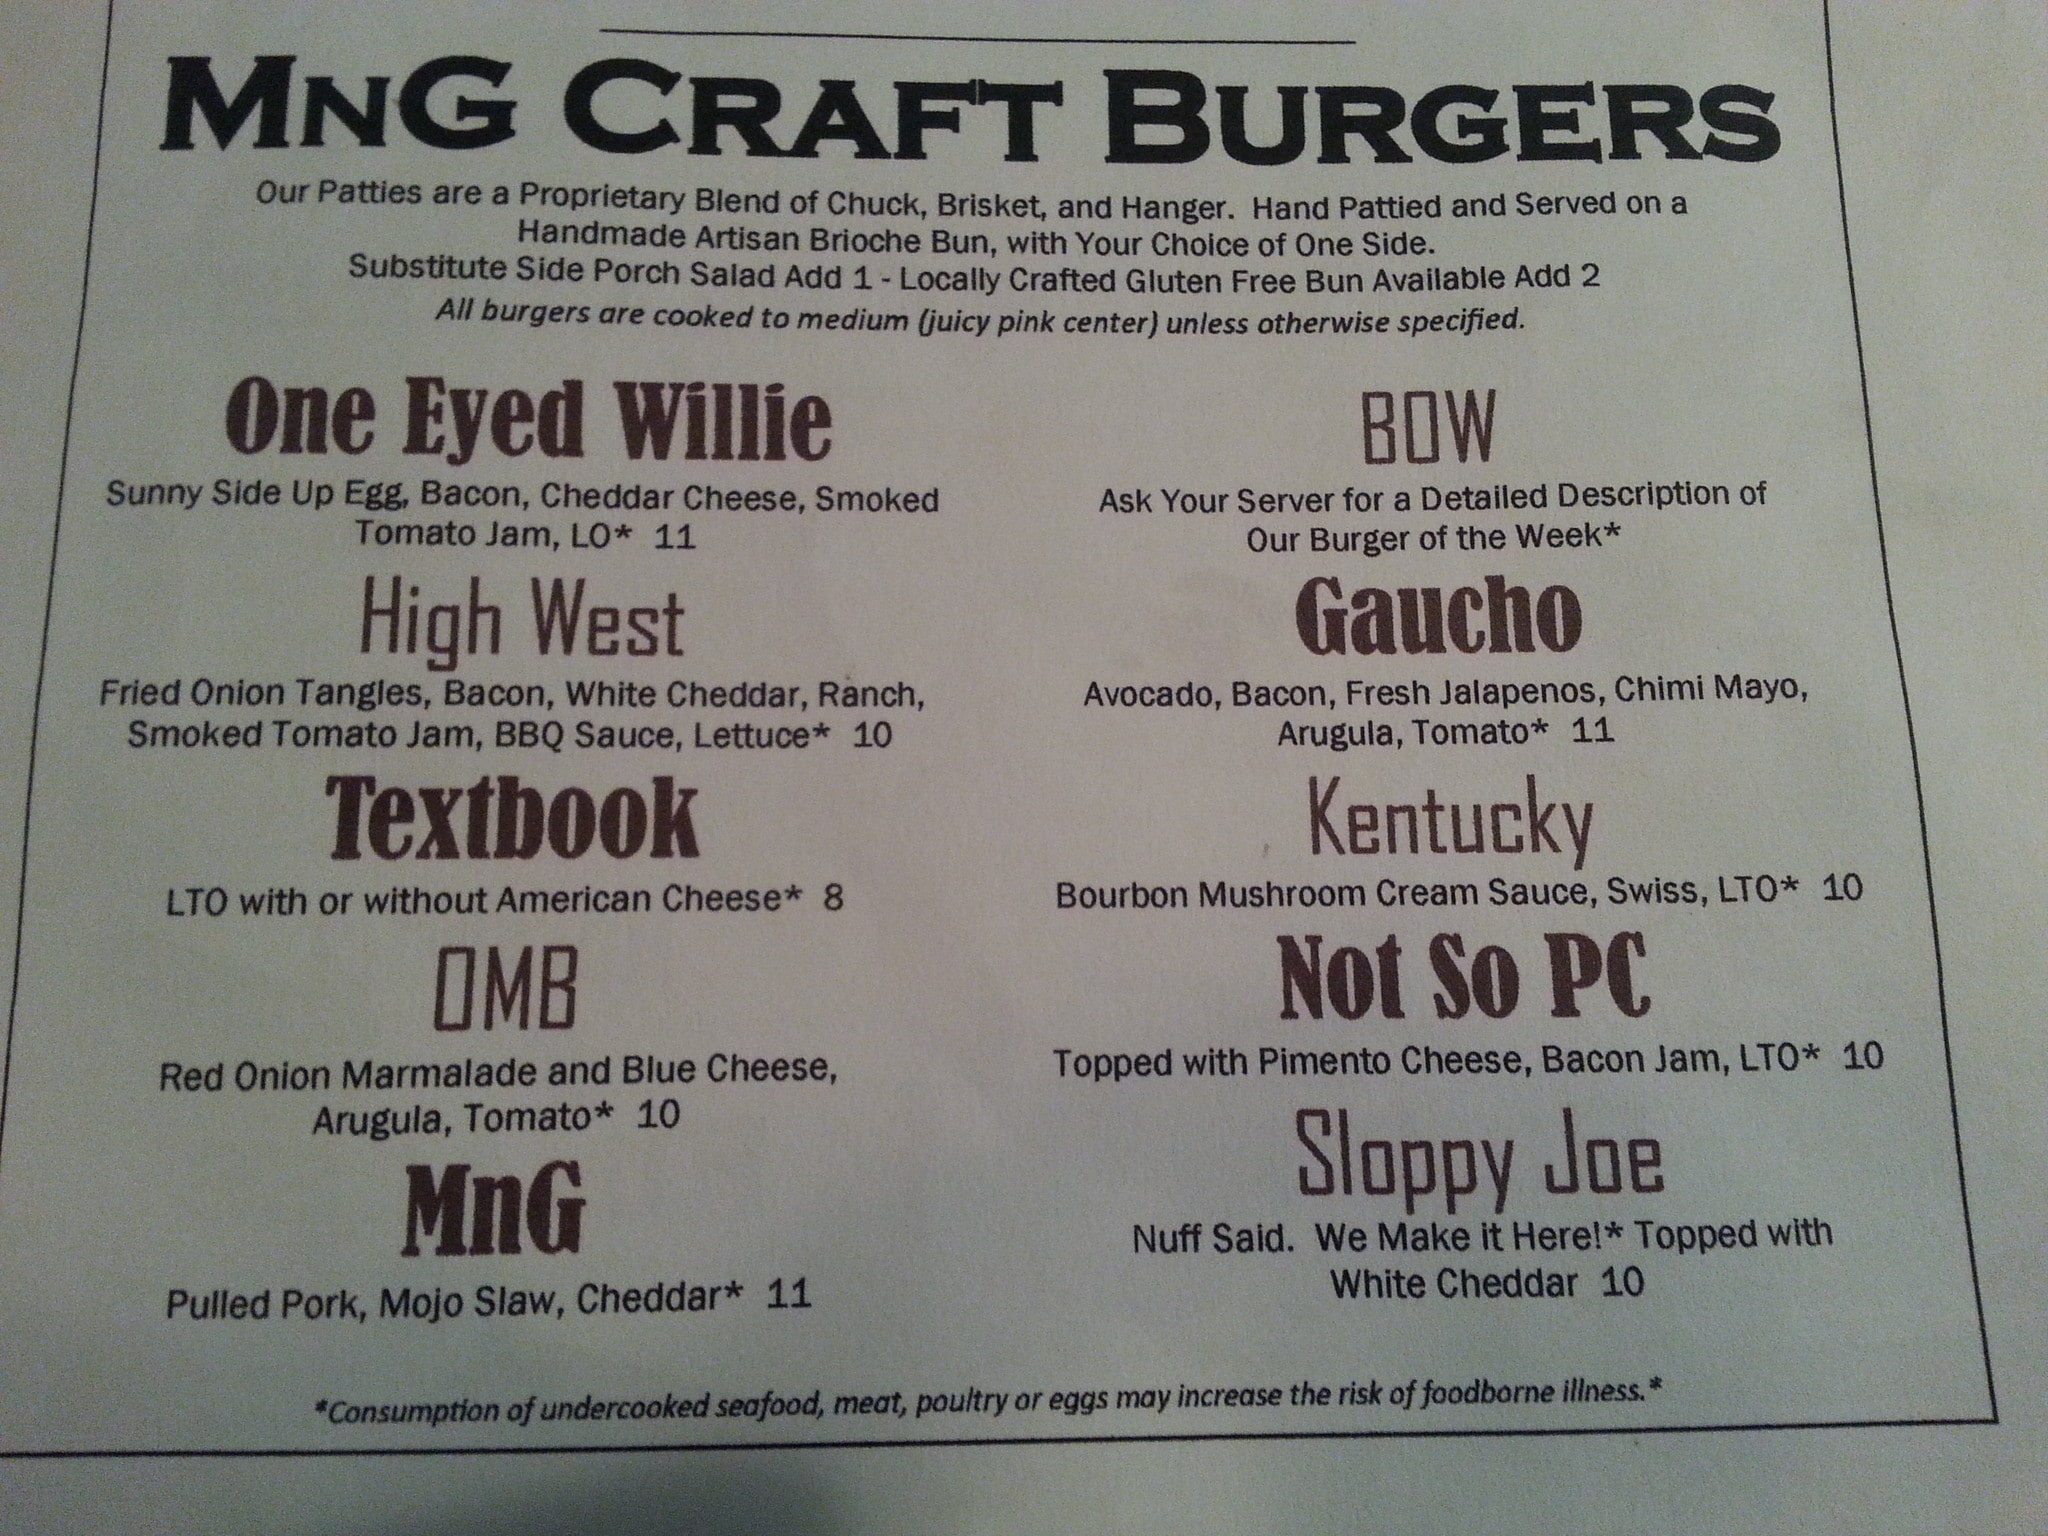 MnG Craft Burgers
Our Patties are a Proprietary Blend of Chuck, Brisket, and Hanger. Hand Pattied and Served on a
Handmade Artisan Brioche Bun, with Your Choice of One Side.
Substitute Side Porch Salad Add 1 - Locally Crafted Gluten Free Bun Available Add 2
All burgers are cooked to medium (juicy pink center) unless otherwise specified.
One Eyed Willie
Sunny Side Up Egg, Bacon, Cheddar Cheese, Smoked
Tomato Jam, LO* 11
High West
Fried Onion Tangles, Bacon, White Cheddar, Ranch,
Smoked Tomato Jam, BBQ Sauce, Lettuce* 10
Textbook
LTO with or without American Cheese* 8
OMB
Red Onion Marmalade and Blue Cheese,
Arugula, Tomato* 10
MnG
Pulled Pork, Mojo Slaw, Cheddar* 11
BOW
Ask Your Server for a Detailed Description of
Our Burger of the Week*
Gaucho
Avocado, Bacon, Fresh Jalapenos, Chimi Mayo,
Arugula, Tomato* 11
Kentucky
Bourbon Mushroom Cream Sauce, Swiss, LTO* 10
Not So PC
Topped with Pimento Cheese, Bacon Jam, LTO* 10
Sloppy Joe
Nuff Said. We Make it Here!* Topped with
White Cheddar 10
*Consumption of undercooked seafood, meat, poultry or eggs may increase the risk of foodborne illness.*